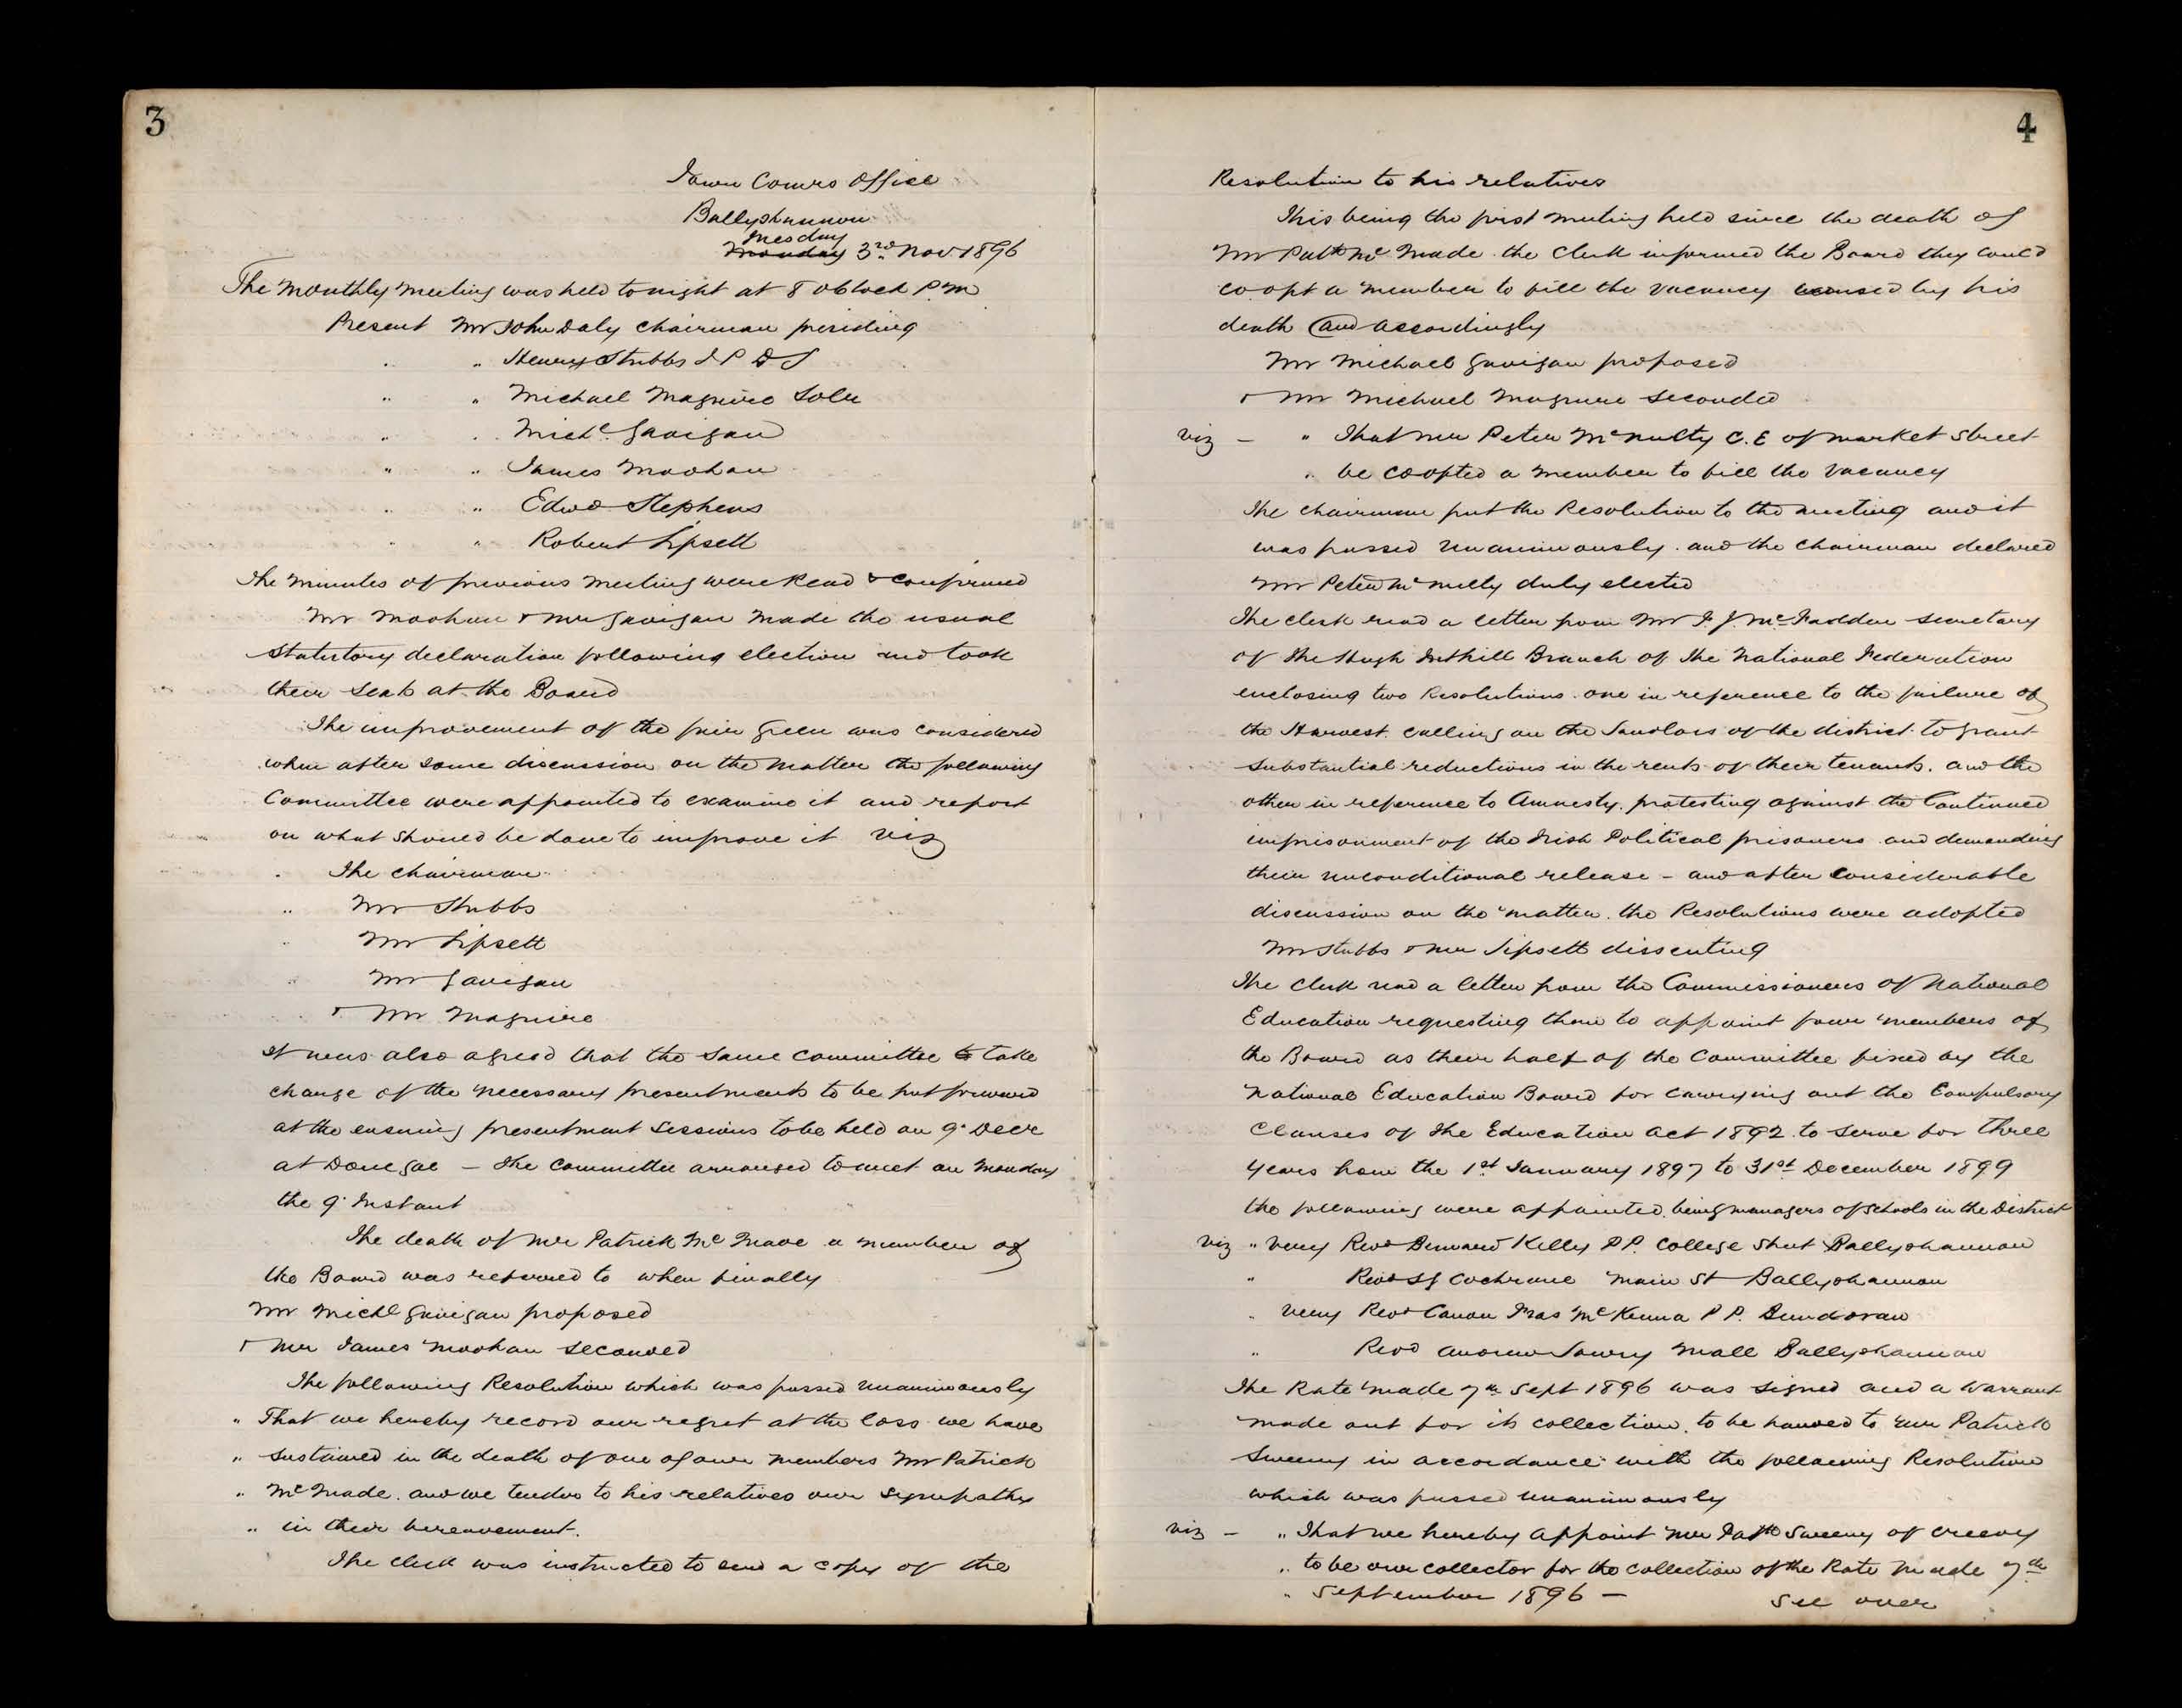 3
Town Comrs Office
Ballyshannon
Tuesday
Monday 3rd Nov. 1896
The Monthly Meeting was held tonight at 8 oClock P.M
Present Mr John Daly Chairman presiding
" " Henry Stubbs J P D L
" " Michael Maguire Solr
" " Michl Gavigan
" " James Moohan
" " Edwd Stephens
" " Robert Lipsett
The Minutes of previous Meeting were Read & Confirmed
Mr Moohan & Mr Gavigan Made the usual
Statutory declaration following election and took
their seats at the Board
The improvement of the fair Green was considered
when after some discussion on the Matter the following
Committee were appointed to examine it and report
on what should be done to improve it viz
. The Chairman
" Mr Stubbs
" Mr Lipsett
" Mr Gavigan
& Mr Maguire
It was also agreed that the same Committee to take
charge of the necessary presentments to be put forward
at the ensuing presentment Sessions to be held on 9 Decr
at Donegal – The Committee arranged to meet on Monday
the 9 Instant
The death of Mr Patrick Mc Made a member of
the Board was referred to when finally
Mr Michl Gavigan proposed
& Mr James Moohan Seconded
The following Resolution which was passed unanimously
" That we hereby record our regret at the loss we have
" sustained in the death of one of our members Mr Patrick
" Mc Made. and we tender to his relatives our Sympathy
" in their bereavement.
The Clerk was instructed to send a copy of the
4
Resolution to his relatives
This being the first Meeting held since the death of
Mr Patk Mc Made the Clerk informed the Board they could
co opt a Member to fill the vacancy caused by his
death (and accordingly
Mr Michael Gavigan proposed
& Mr Michael Maguire Seconded
viz – " That Mr Peter McNulty C.E of Market Street
" be coopted a Member to fill the Vacancy
The Chairman put the Resolution to the Meeting and it
was passed unanimously. and the Chairman declared
Mr Peter McNulty duly elected
The Clerk read a letter from Mr J. McFadden Secretary
of the Hugh Branch of the National Federation
enclosing two Resolutions. one in reference to the failure of
the Harvest. calling on the Landlords of the district to grant
substantial reductions in the rents of their tenants. and the
other in reference to Amnesty. protesting against the Continued
imprisonment of the Irish Political prisoners and demanding
their unconditional release – and after Considerable
discussion on the matter. the Resolutions were adopted
Mr Stubbs & Mr Lipsett dissenting
The Clerk read a letter from the Commissioners of National
Education requesting them to appoint four members of
the Board as their half of the Committee fixed by the
National Education Board for carrying out the Compulsory
Clauses of the Education Act 1892 to serve for three
years from the 1st January 1897 to 31st December 1899
the following were appointed. being managers of schools in the District
viz " Very Revd Bernard Kelly P.P. College Street Ballyshannon
" Revd S J Cochrane Main St Ballyshannon
" Very Revd Canon Fras McKenna P P. Bundoran
" Revd Andrew Lowry Mall Ballyshannon
The Rate Made 7th Sept 1896 was signed and a Warrant
made out for its collection. to be handed to Mr Patrick
Sweeny in accordance with the following Resolution
which was passed unanimously
viz – " That we hereby appoint Mr Patk Sweeny of Creevy
" to be our collector for the collection of the Rate Made 7th
" September 1896 –
See over